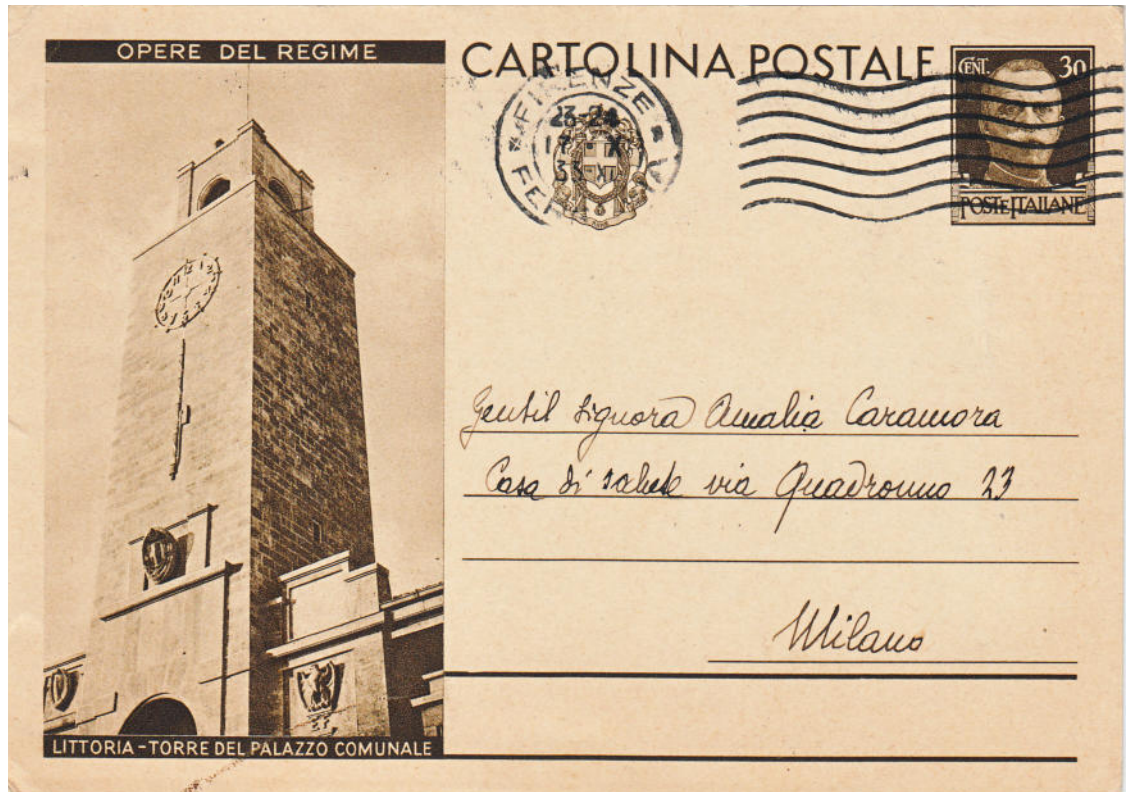 OPERE DEL REGIME
CARTOLINA POSTALE
CENT. 30
POSTE ITALIANE
FIRENZE
23-24
17 - X
33-XI
FERROVIA
Gentil Signora Amalia Caramora
Casa di salute via Quadronno 23
Milano
LITTORIA - TORRE DEL PALAZZO COMUNALE